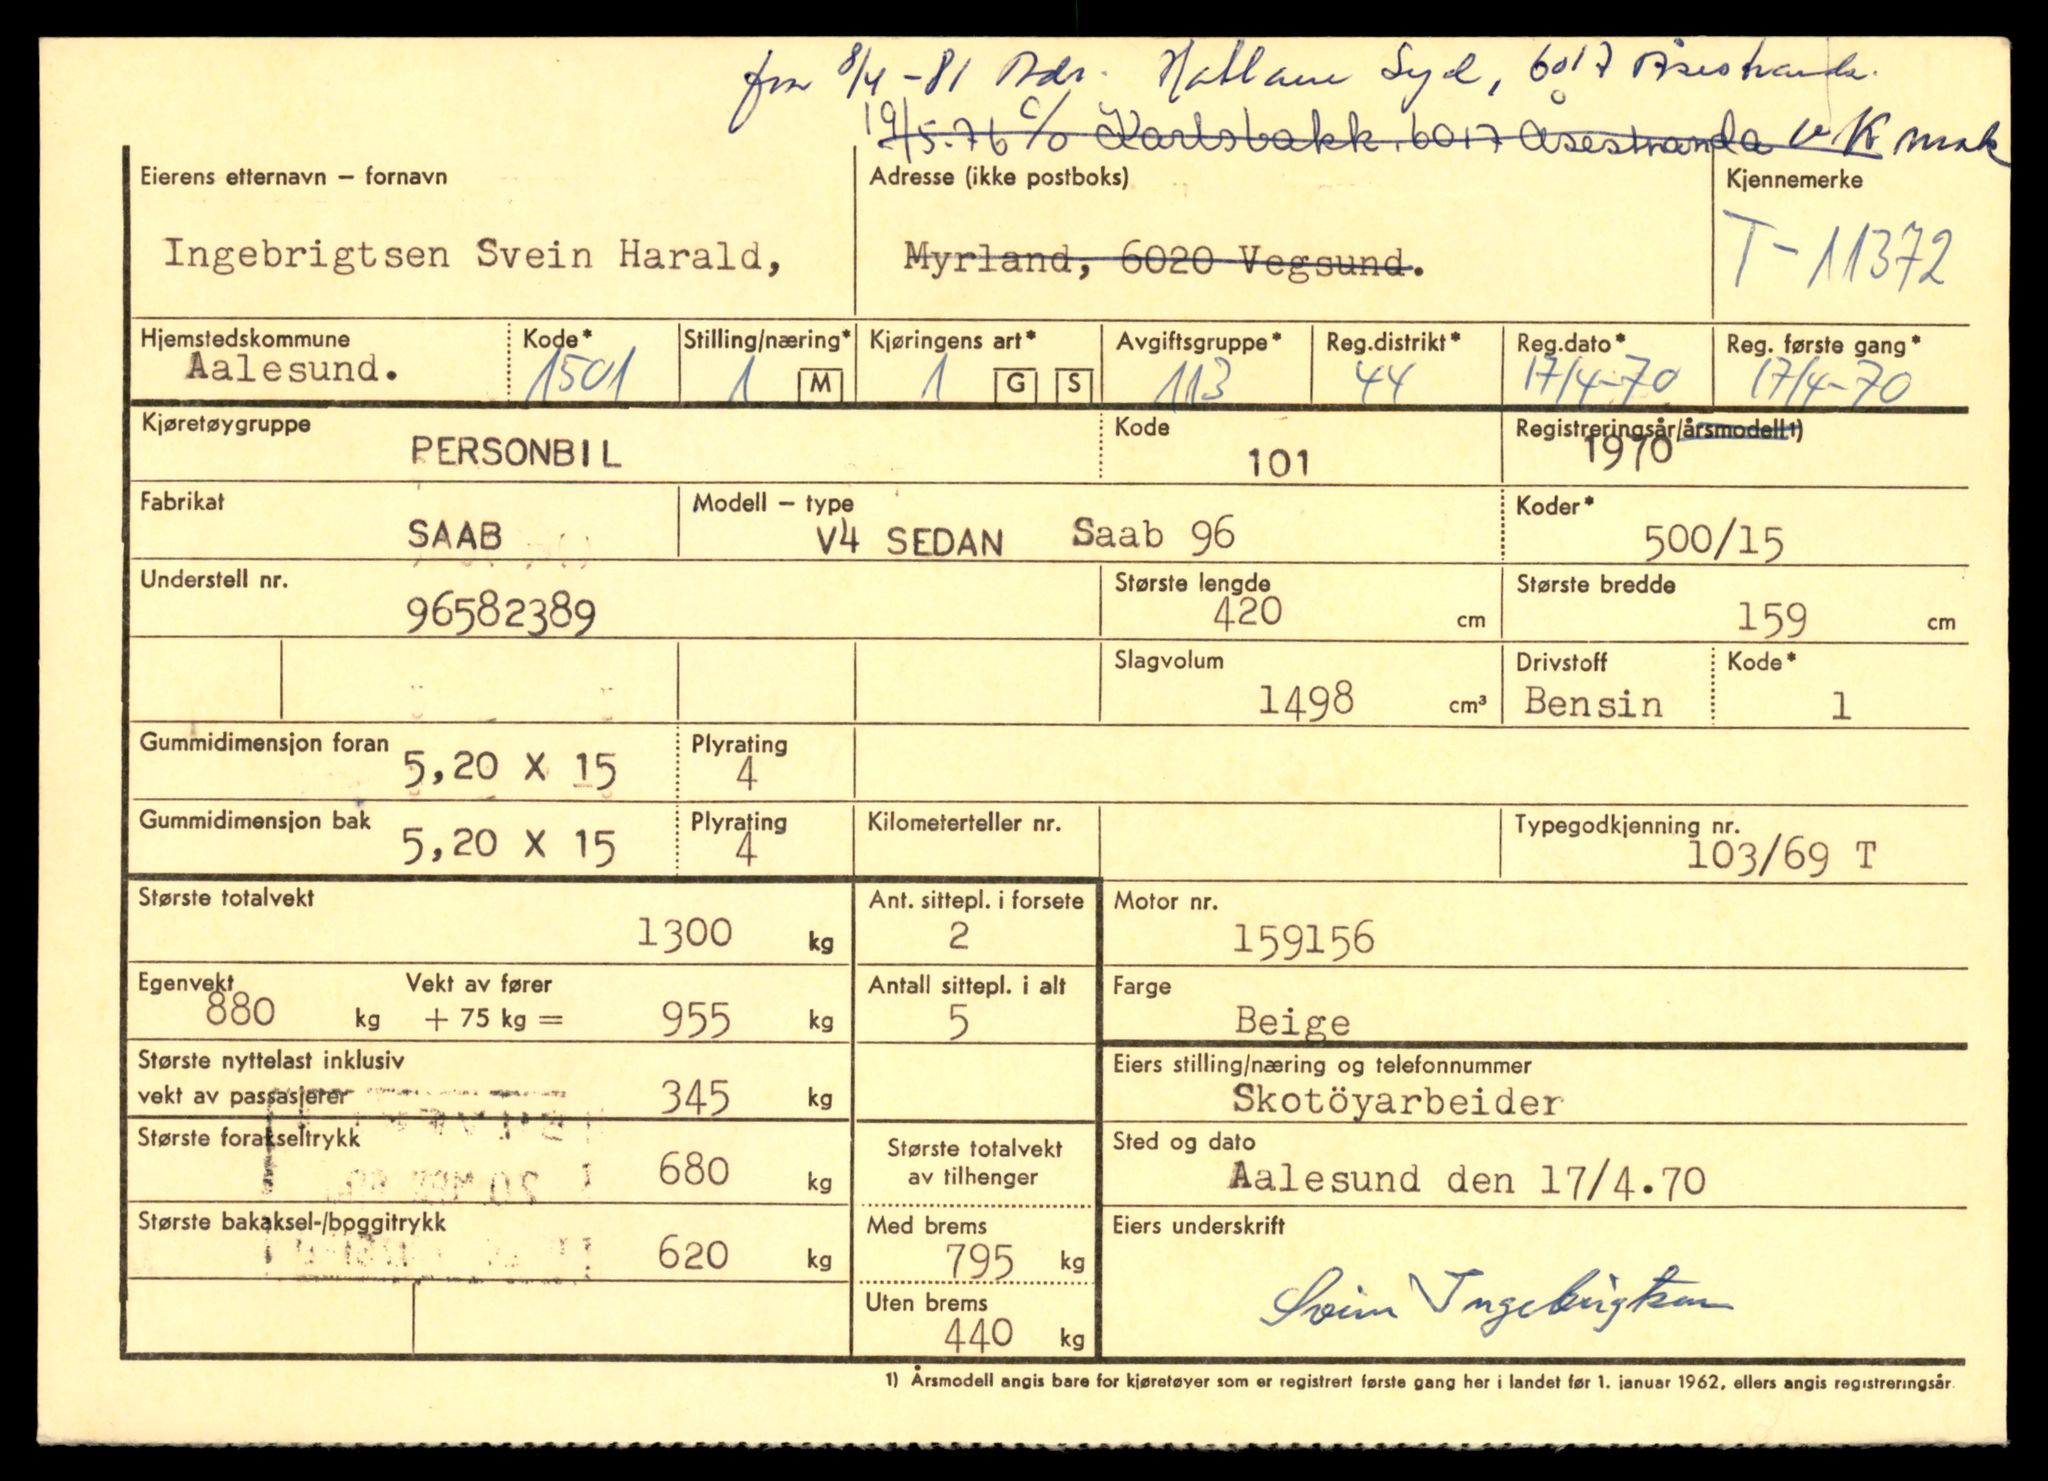 fra 8/4-81 Adr. Hatlane Syd, 6017 Åsestranda.
19/5.76 c/o Karlsbakk, 6017 Åsestranda v/K
Eierens etternavn – fornavn Adresse (ikke postboks) Kjennemerke
Ingebrigtsen Svein Harald, Myrland, 6020 Vegsund. T-11372
Hjemstedskommune Kode* Stilling/næring* Kjøringens art* Avgiftsgruppe* Reg.distrikt* Reg.dato* Reg. første gang*
Aalesund. 1501 1 M 1 G S 113 44 17/4-70 17/4-70
Kjøretøygruppe Kode Registreringsår/årsmodell 1)
PERSONBIL 101 1970
Fabrikat Modell – type Koder*
SAAB V4 SEDAN Saab 96 500/15
Understell nr. Største lengde Største bredde
96582389 420 cm 159 cm
Slagvolum Drivstoff Kode*
1498 cm³ Bensin 1
Gummidimensjon foran Plyrating
5,20 X 15 4
Gummidimensjon bak Plyrating Kilometerteller nr. Typegodkjenning nr.
5,20 X 15 4 103/69 T
Største totalvekt Ant. sittepl. i forsete Motor nr.
1300 kg 2 159156
Egenvekt Vekt av fører Antall sittepl. i alt Farge
880 kg + 75 kg = 955 kg 5 Beige
Største nyttelast inklusiv Eiers stilling/næring og telefonnummer
vekt av passasjerer 345 kg Skotöyarbeider
Største forakseltrykk Største totalvekt Sted og dato
680 kg av tilhenger Aalesund den 17/4.70
Største bakaksel-/boggitrykk Med brems Eiers underskrift
620 kg 795 kg
Svein Ingebrigtsen
Uten brems
440 kg
1) Årsmodell angis bare for kjøretøyer som er registrert første gang her i landet før 1. januar 1962, ellers angis registreringsår.